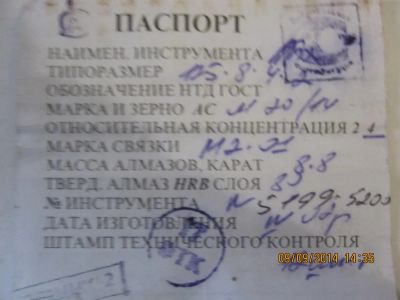 ПАСПОРТ
НАИМЕН. ИНСТРУМЕНТА
ТИПОРАЗМЕР
ОБОЗНАЧЕНИЕ НТД ГОСТ
МАРКА И ЗЕРНО АС 20/14
ОТНОСИТЕЛЬНАЯ КОНЦЕНТРАЦИЯ 2 4
МАРКА СВЯЗКИ М2-01
МАССА АЛМАЗОВ, КАРАТ 8.8
ТВЕРД. АЛМАЗ HRB СЛОЯ 89
№ ИНСТРУМЕНТА N 5199-5200
ДАТА ИЗГОТОВЛЕНИЯ
ШТАМП ТЕХНИЧЕСКОГО КОНТРОЛЯ
ОТК
2
09/09/2014 14:35